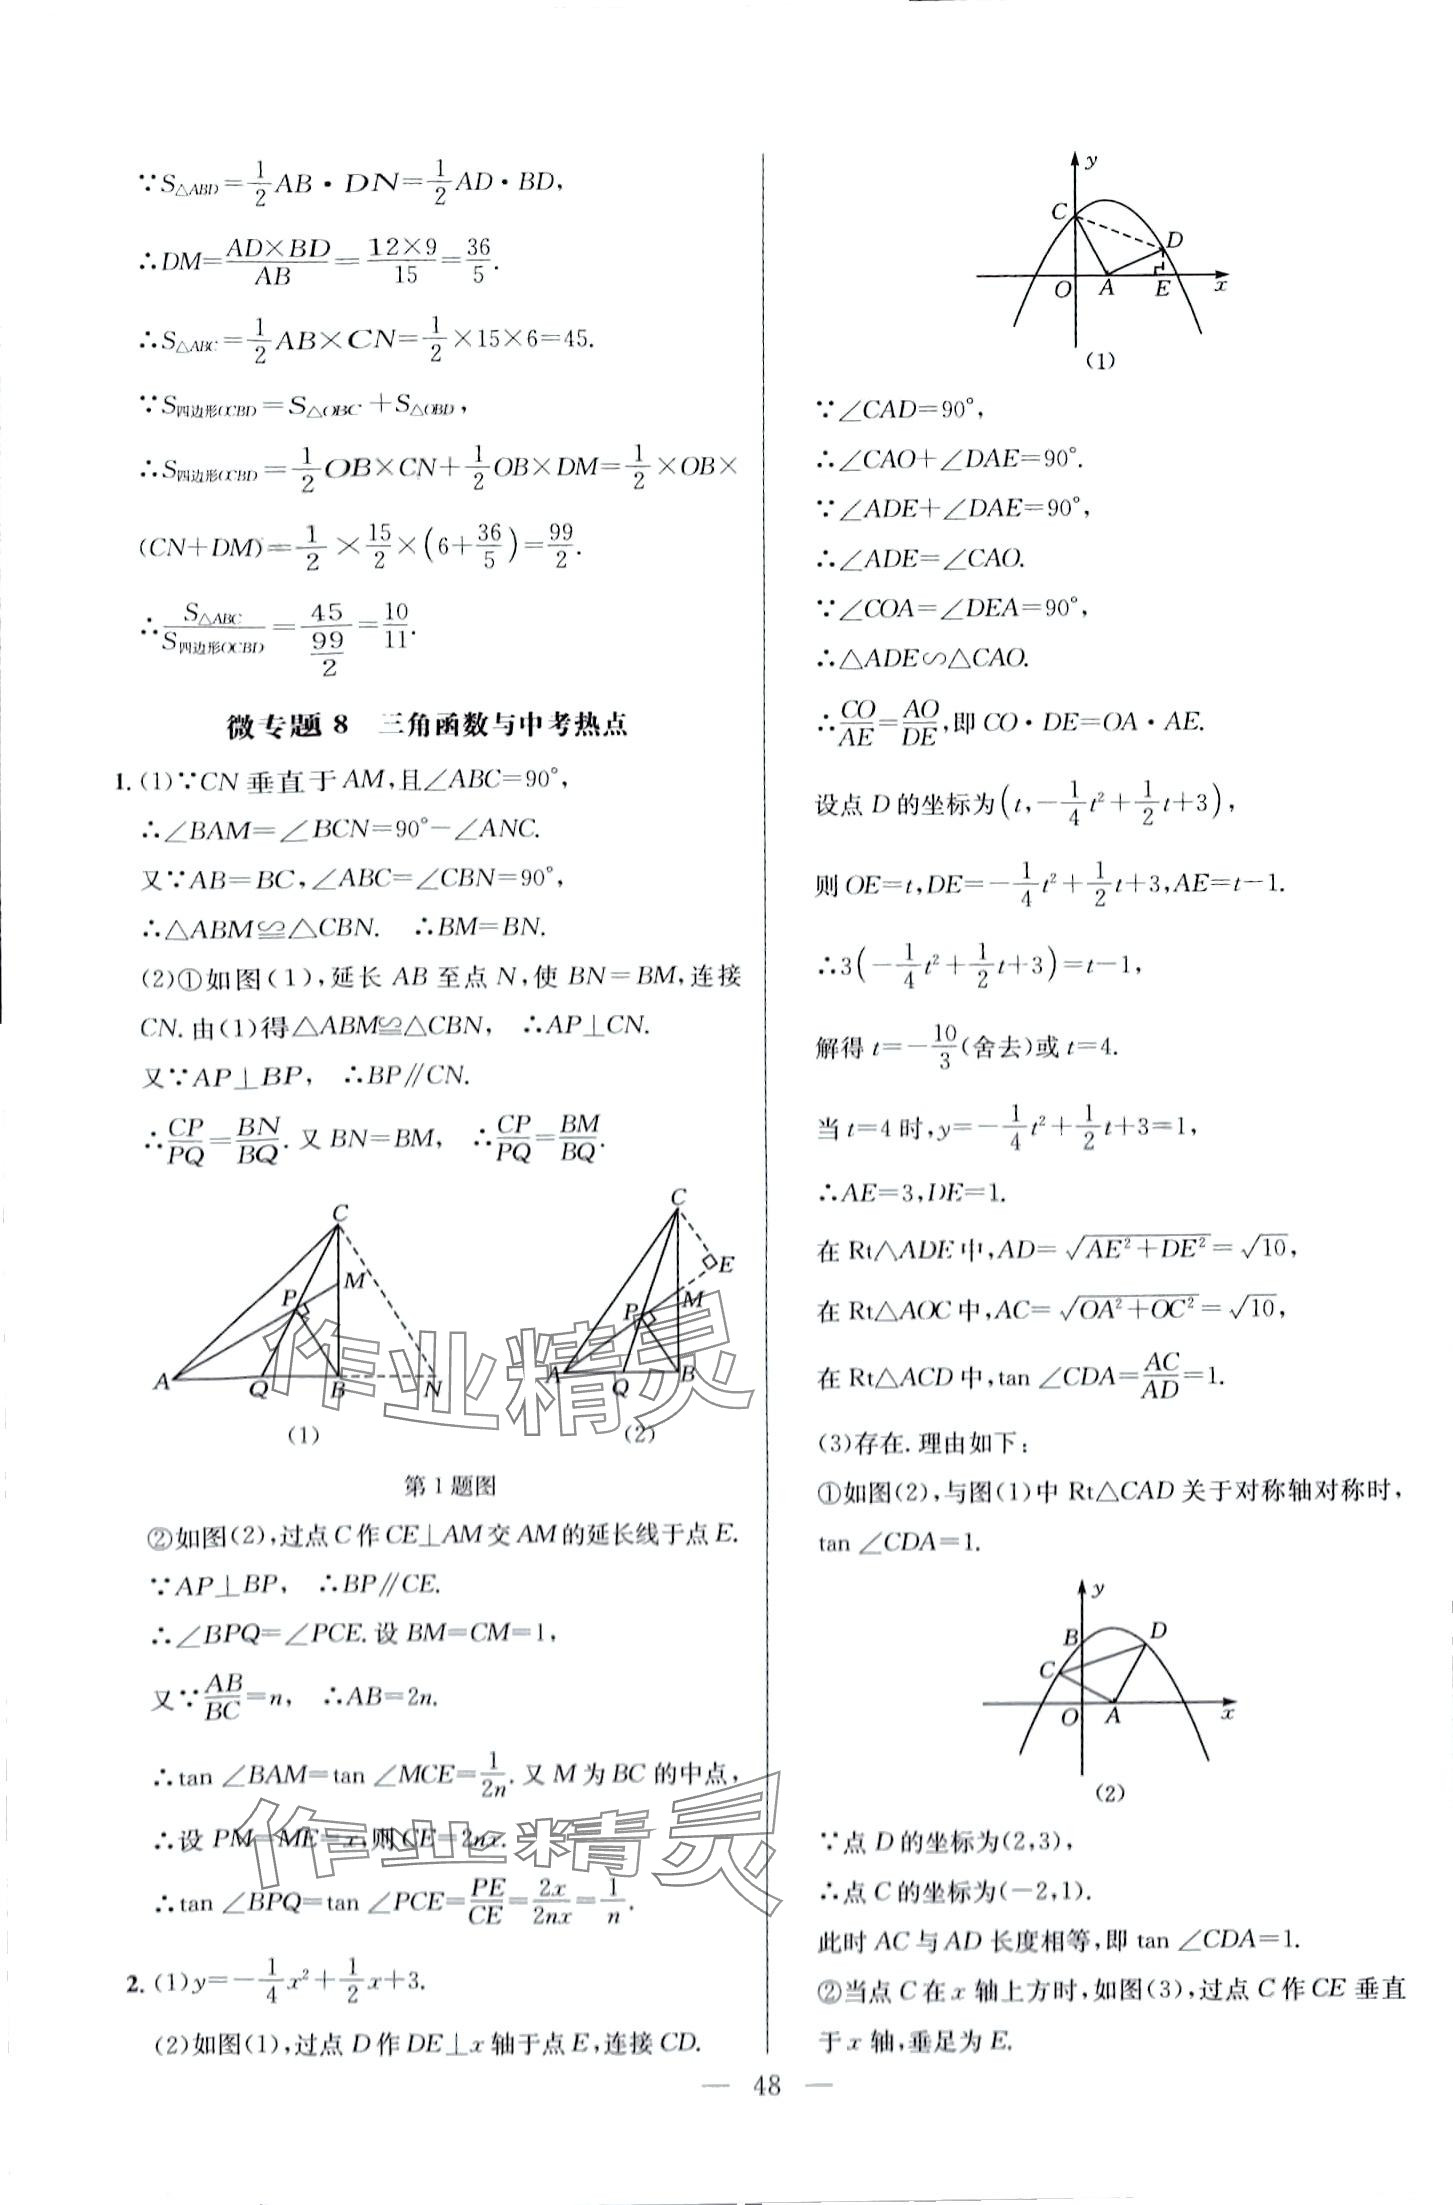 ∵S△ABD=1/2 AB·DN=1/2 AD·BD,
∴DM=AD×BD/AB=12×9/15=36/5.
∴S△ABC=1/2 AB×CN=1/2×15×6=45.
∵S四边形OCBD=S△OBC+S△OBD,
∴S四边形OCBD=1/2 OB×CN+1/2 OB×DM=1/2×OB×
(CN+DM)=1/2×15/2×(6+36/5)=99/2.
∴S△ABC/S四边形OCBD=45/(99/2)=10/11.
微专题 8 三角函数与中考热点
1. (1)∵CN 垂直于 AM,且∠ABC=90°,
∴∠BAM=∠BCN=90°-∠ANC.
又∵AB=BC,∠ABC=∠CBN=90°,
∴△ABM≌△CBN. ∴BM=BN.
(2)①如图(1),延长 AB 至点 N,使 BN=BM,连接
CN.由(1)得△ABM≌△CBN, ∴AP⊥CN.
又∵AP⊥BP, ∴BP∥CN.
∴CP/PQ=BN/BQ.又 BN=BM, ∴CP/PQ=BM/BQ.
C
M
P
A
Q
B
N
(1)
C
E
M
P
A
Q
B
(2)
第 1 题图
②如图(2),过点 C 作 CE⊥AM 交 AM 的延长线于点 E.
∵AP⊥BP, ∴BP∥CE.
∴∠BPQ=∠PCE.设 BM=CM=1,
又∵AB/BC=n, ∴AB=2n.
∴tan ∠BAM=tan ∠MCE=1/2n.又 M 为 BC 的中点,
∴设 PM=ME=x,则 CE=2nx.
∴tan ∠BPQ=tan ∠PCE=PE/CE=2x/2nx=1/n.
2. (1)y=-1/4 x²+1/2 x+3.
(2)如图(1),过点 D 作 DE⊥x 轴于点 E,连接 CD.
y
C
D
O
A
E
x
(1)
∵∠CAD=90°,
∴∠CAO+∠DAE=90°.
∵∠ADE+∠DAE=90°,
∴∠ADE=∠CAO.
∵∠COA=∠DEA=90°,
∴△ADE∽△CAO.
∴CO/AE=AO/DE,即 CO·DE=OA·AE.
设点 D 的坐标为(t,-1/4 t²+1/2 t+3),
则 OE=t,DE=-1/4 t²+1/2 t+3,AE=t-1.
∴3(-1/4 t²+1/2 t+3)=t-1,
解得 t=-10/3(舍去)或 t=4.
当 t=4 时,y=-1/4 t²+1/2 t+3=1,
∴AE=3,DE=1.
在 Rt△ADE 中,AD=√(AE²+DE²)=√10,
在 Rt△AOC 中,AC=√(OA²+OC²)=√10,
在 Rt△ACD 中,tan ∠CDA=AC/AD=1.
(3)存在.理由如下:
①如图(2),与图(1)中 Rt△CAD 关于对称轴对称时,
tan ∠CDA=1.
y
B
D
C
O
A
x
(2)
∵点 D 的坐标为(2,3),
∴点 C 的坐标为(-2,1).
此时 AC 与 AD 长度相等,即 tan ∠CDA=1.
②当点 C 在 x 轴上方时,如图(3),过点 C 作 CE 垂直
于 x 轴,垂足为 E.
— 48 —
作业精灵
作业精灵